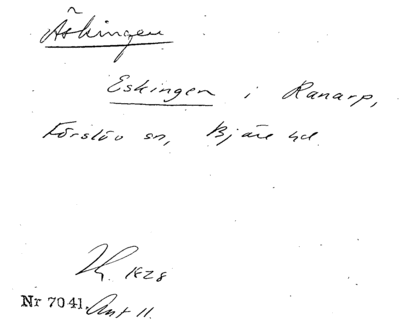 Äskingen
Eskingen i Ranarp,
Förslöv sn, Bjäre hd.
1828
Nr 7041. Ant 11.